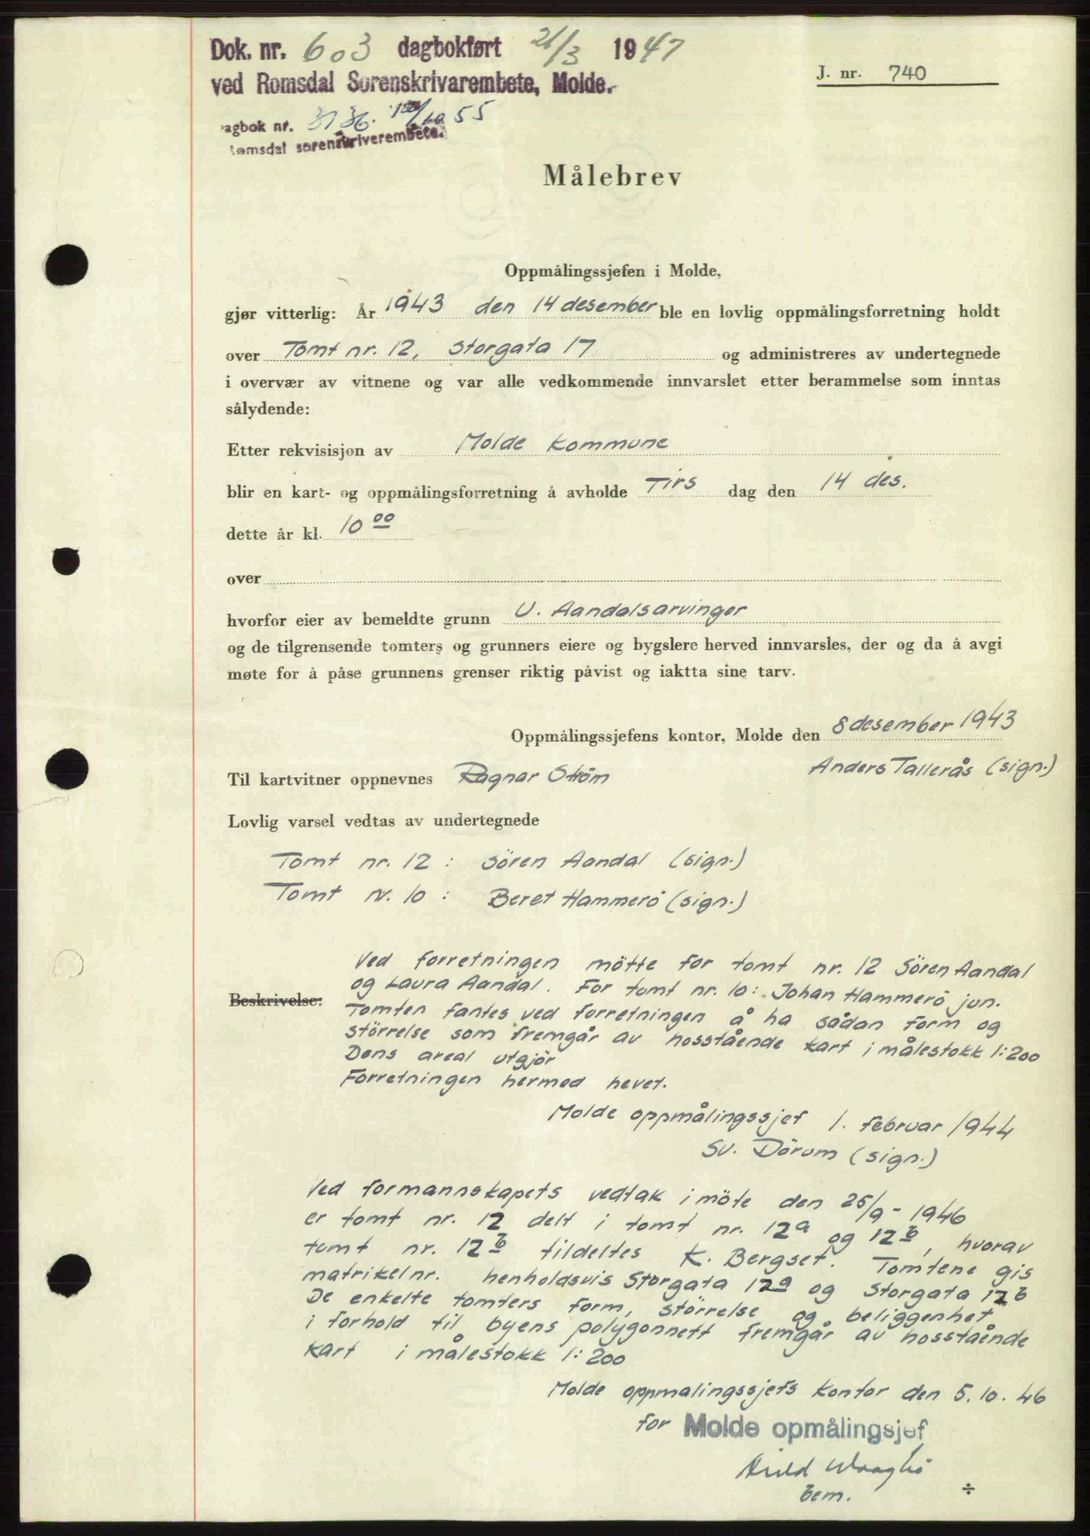 Dok. nr. 603 dagbokført 21/3 1947
ved Romsdal Sorenskrivarembete, Molde.
J. nr. 740
agbok nr. 3136. /10 55
Romsdal sorenskriverembete.
Målebrev
Oppmålingssjefen i Molde,
gjør vitterlig: År 1943 den 14 desember ble en lovlig oppmålingsforretning holdt
over Tomt nr. 12, Storgata 17 og administreres av undertegnede
i overvær av vitnene og var alle vedkommende innvarslet etter berammelse som inntas
sålydende:
Etter rekvisisjon av Molde Kommune
blir en kart- og oppmålingsforretning å avholde Tirs dag den 14 des.
dette år kl. 10 00
over
hvorfor eier av bemeldte grunn U. Aandalsarvinger
og de tilgrensende tomters og grunners eiere og bygslere herved innvarsles, der og da å avgi
møte for å påse grunnens grenser riktig påvist og iaktta sine tarv.
Oppmålingssjefens kontor, Molde den 8 desember 1943
Til kartvitner oppnevnes Ragnar Ström
Anders Tallerås (sign.)
Lovlig varsel vedtas av undertegnede
Tomt nr. 12 : Sören Aandal (sign.)
Tomt nr. 10 : Beret Hammerö (sign.)
Beskrivelse:
Ved forretningen mötte for tomt nr. 12 Sören Aandal
og Laura Aandal. For tomt nr. 10: Johan Hammerö jun.
Tomten fantes ved forretningen å ha sådan form og
störrelse som fremgår av hosstående kart i målestokk 1:200
Dens areal utgjör
Forretningen hermed hevet.
Molde oppmålingssjef 1. februar 1944
Sv. Dörum (sign.)
Ved formannskapets vedtak i möte den 25/9 - 1946
er tomt nr. 12 delt i tomt nr. 12a og 12b, hvorav
tomt nr. 12b tildeltes K. Bergset. Tomtene gis
matrikelnr. henholdsvis Storgata 12a og Storgata 12b
De enkelte tomters form, störrelse og beliggenhet
i forhold til byens polygonnett fremgår av hosstående
kart i målestokk 1:200
Molde oppmalingssjefs kontor den 5.10.46
for Molde opmålingsjef
bem.
÷